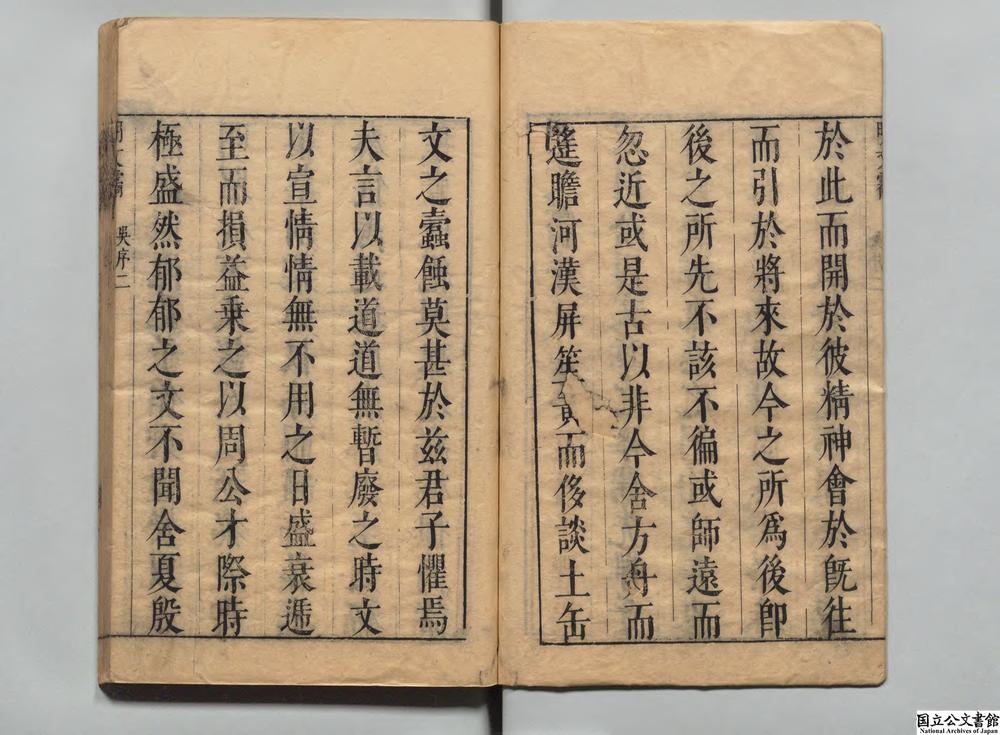 於此而開於彼精神會於旣往
而引於將來故今之所爲後卽
後之所先不該不徧或師遠而
忽近或是古以非今舍方舟而
瞻河漢屏笙而侈談土缶
文之蠧蝕莫甚於兹君子懼焉
夫言以載道道無暫廢之時文
以宣情情無不用之日盛衰遞
至而損益乗之以周公才際時
極盛然郁郁之文不聞舍夏殷
吳序二
国立公文書館
National Archives of Japan